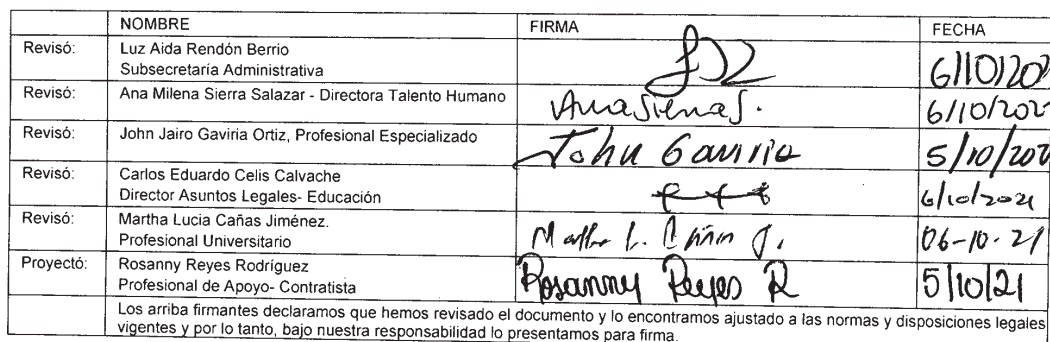 NOMBRE FIRMA FECHA
Revisó: Luz Aida Rendón Berrio
Subsecretaría Administrativa 6/10/202
Revisó: Ana Milena Sierra Salazar - Directora Talento Humano AnaSierraS. 6/10/202
Revisó: John Jairo Gaviria Ortiz, Profesional Especializado John Gaviria 5/10/202
Revisó: Carlos Eduardo Celis Calvache
Director Asuntos Legales- Educación 6/10/2021
Revisó: Martha Lucia Cañas Jiménez.
Profesional Universitario Martha L. Cañas J. 06-10-21
Proyectó: Rosanny Reyes Rodríguez
Profesional de Apoyo- Contratista Rosanny Reyes R 5/10/21
Los arriba firmantes declaramos que hemos revisado el documento y lo encontramos ajustado a las normas y disposiciones legales
vigentes y por lo tanto, bajo nuestra responsabilidad lo presentamos para firma.